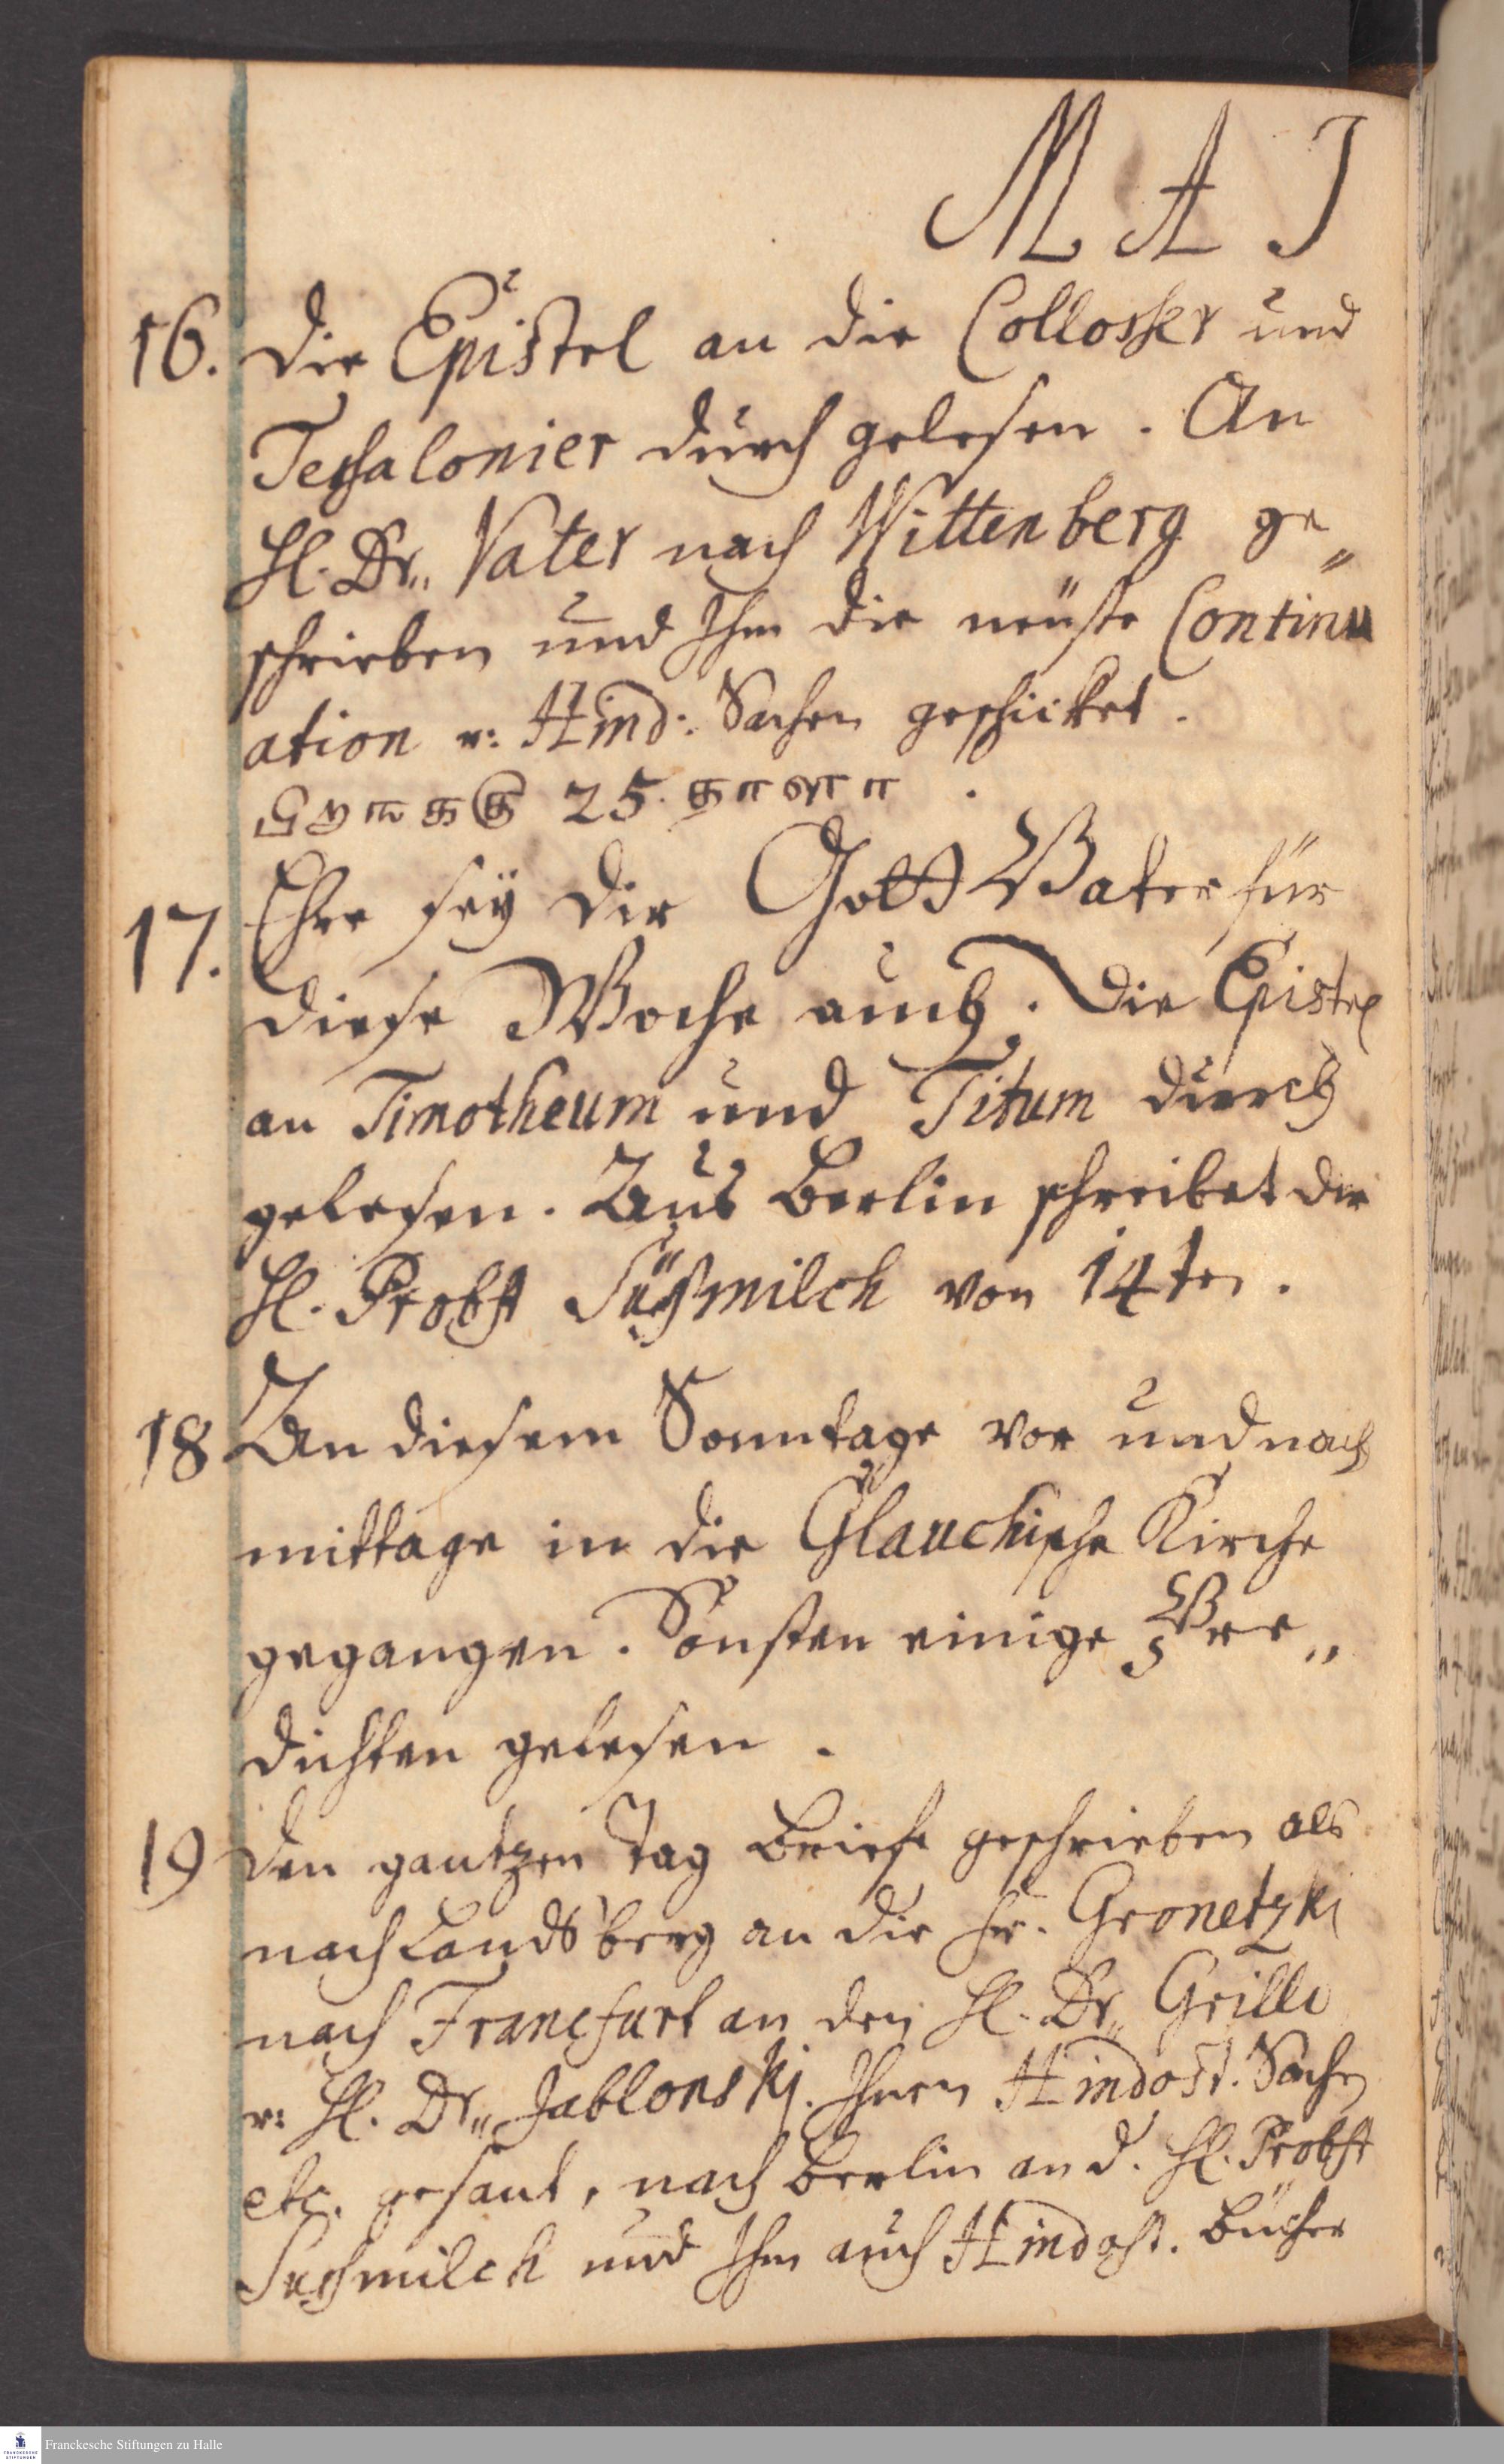 MAJ
16. Die Epistel an die Collosser und
Tessalonier durch gelesen. An
H. Dr. Vater nach Wittenberg ge„
schrieben und Ihm die neuste Continu
ation u: Hind: Sachen geschicket.
25.
17. Ehre sey dir Gott Vater für
diese Woche auch. Die Epistel
an Timotheum und Titum durch
gelesen. Aus Berlin schreibet der
H. Probst Süßmilch von 14ten.
18 An diesem Sonntage vor und nach
mittage in die Glauchische Kirche
gegangen. Sonsten einige
gelesen.
19 Den gantzen Tag Briefe geschrieben als
nach Landsberg an die Fr. Gronetzki
nach Francfurt an den H. Dr. Grillo
u: H. Dr. Jablonskj. Ihnen Hindost. Sachen
etc. gesant, nach Berlin an d. H. Probst
Süßmilch und Ihm auch Hindost. Bücher
Franckesche Stiftungen zu Halle